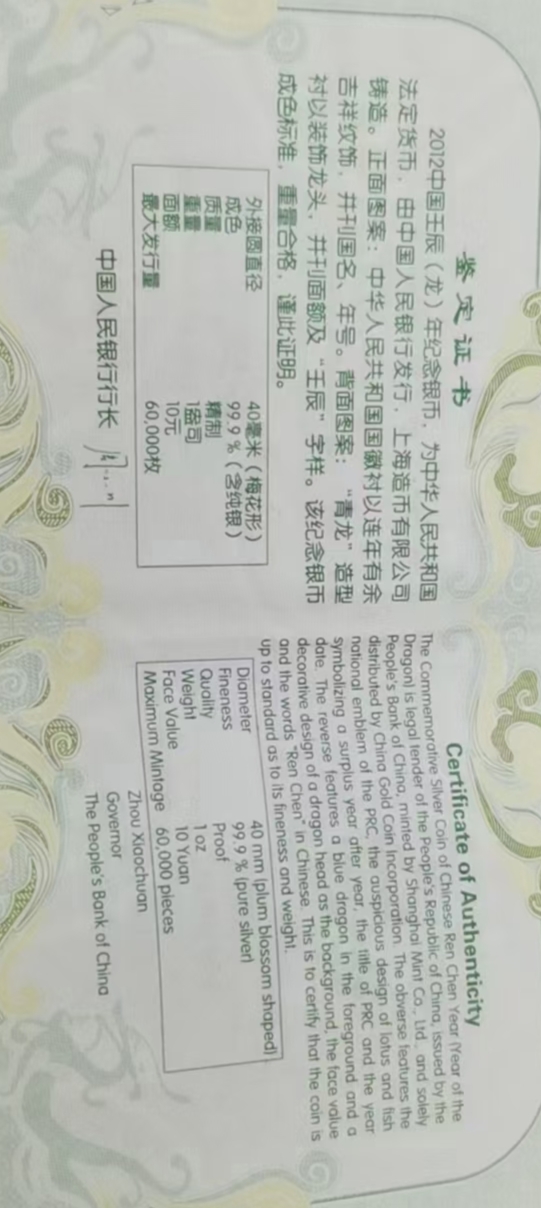 鉴定证书
2012中国壬辰（龙）年纪念银币，为中华人民共和国
法定货币，由中国人民银行发行，上海造币有限公司
铸造。正面图案：中华人民共和国国徽衬以连年有余
吉祥纹饰，并刊国名、年号。背面图案：“青龙”造型
衬以装饰龙头，并刊面额及“壬辰”字样。该纪念银币
成色标准，重量合格，谨此证明。
外接圆直径 40毫米（梅花形）
成色 99.9％（含纯银）
质量 精制
重量 1盎司
面额 10元
最大发行量 60,000枚
中国人民银行行长
Certificate of Authenticity
The Commemorative Silver Coin of Chinese Ren Chen Year (Year of the
Dragon) is legal tender of the People's Republic of China, issued by the
People's Bank of China, minted by Shanghai Mint Co., Ltd., and solely
distributed by China Gold Coin Incorporation. The obverse features the
national emblem of the PRC, the auspicious design of lotus and fish
symbolizing a surplus year after year, the title of PRC and the year
date. The reverse features a blue dragon in the foreground and a
decorative design of a dragon head as the background, the face value
and the words "Ren Chen" in Chinese. This is to certify that the coin is
up to standard as to its fineness and weight.
Diameter 40 mm (plum blossom shaped)
Fineness 99.9 % (pure silver)
Quality Proof
Weight 1 oz
Face Value 10 Yuan
Maximum Mintage 60,000 pieces
Zhou Xiaochuan
Governor
The People's Bank of China